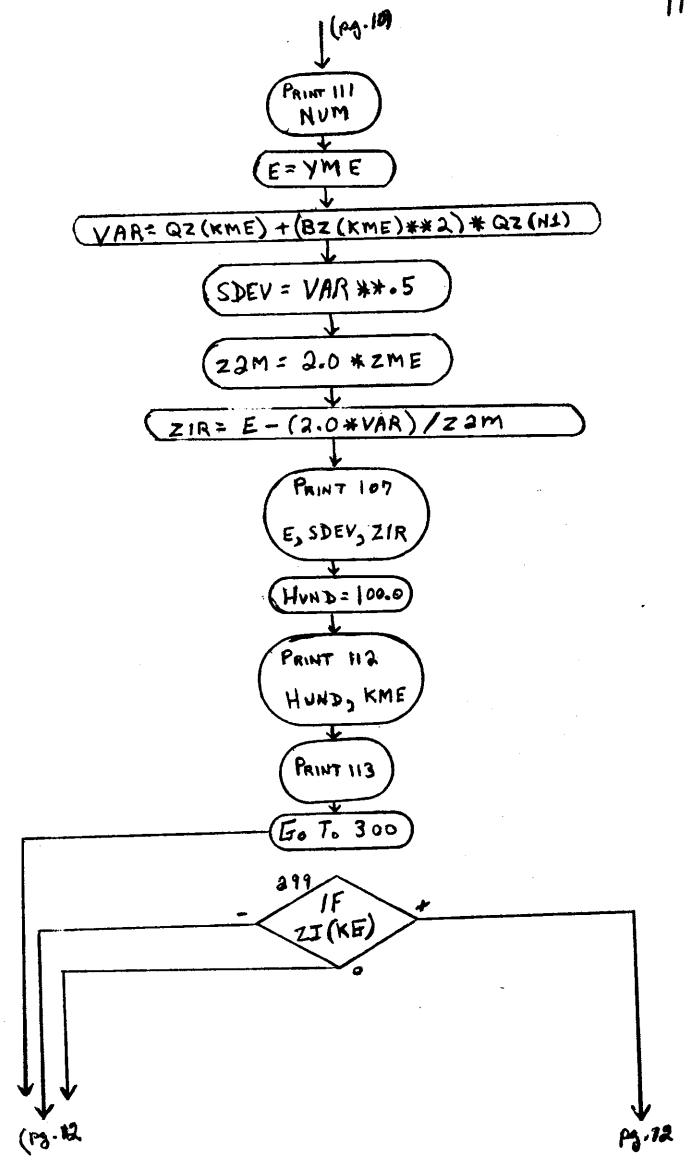 11
(pg. 10)
PRINT 111
NUM
E = YME
VAR = QZ(KME) + (BZ(KME)**2) * QZ(N1)
SDEV = VAR **.5
Z2M = 2.0 * ZME
Z1R = E - (2.0*VAR) / Z2M
PRINT 107
E, SDEV, Z1R
HUND = 100.0
PRINT 112
HUND, KME
PRINT 113
Go To 300
299
IF
ZI(KE)
-
+
0
(pg. 12
pg. 12